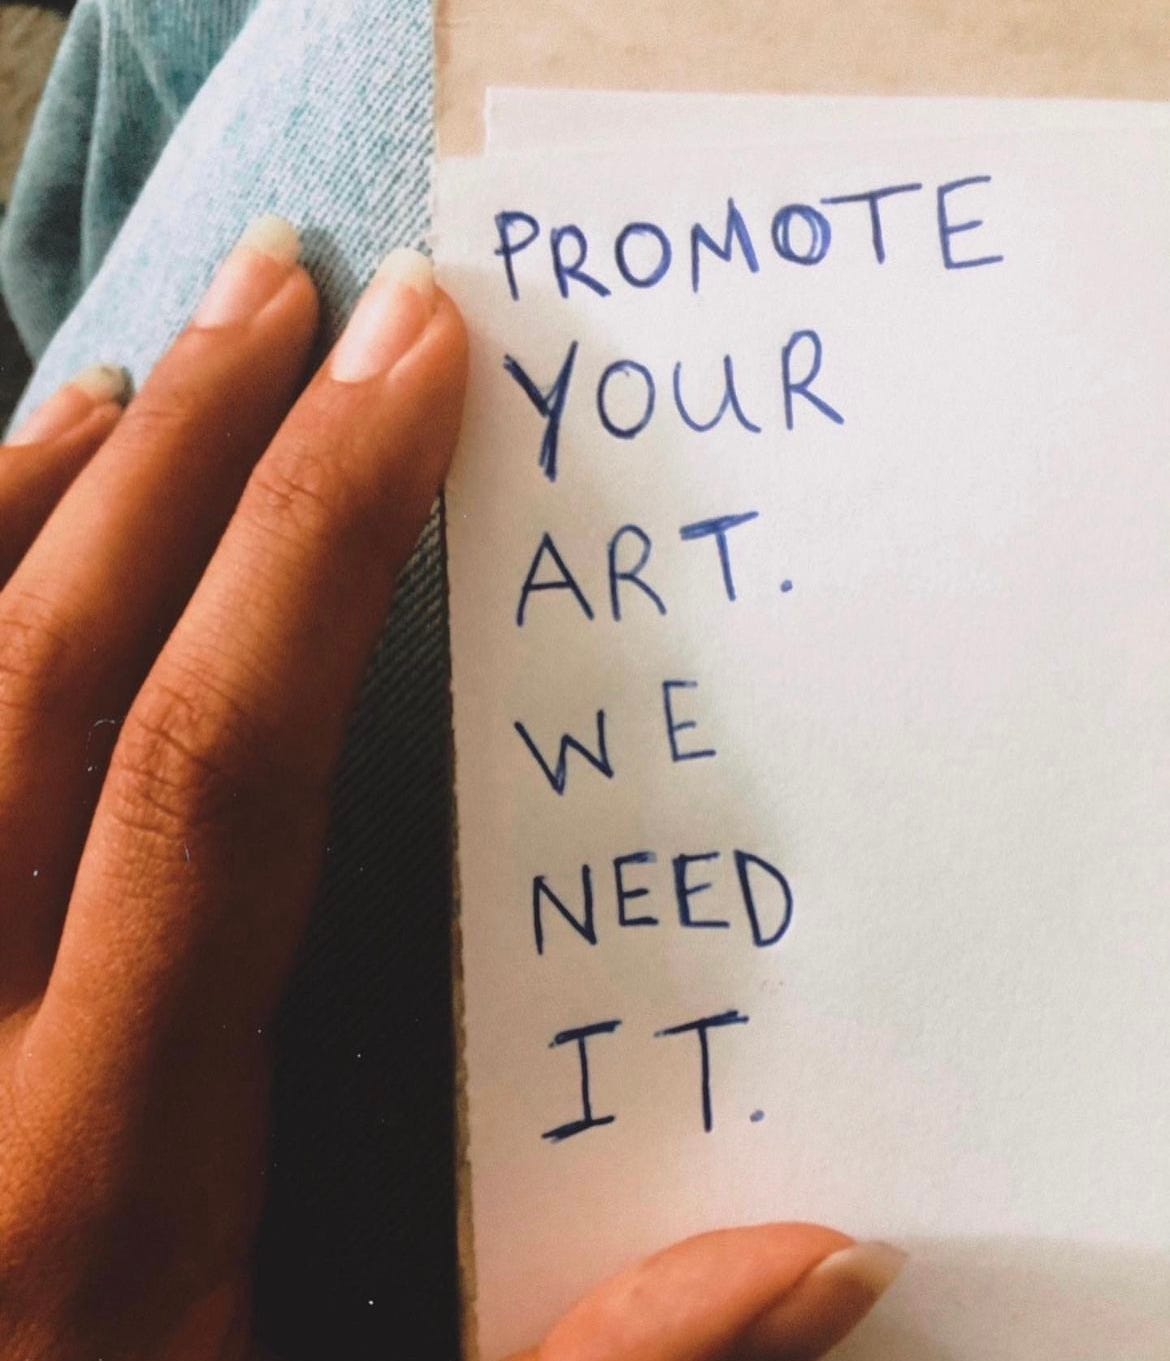 PROMOTE
YOUR
ART.
WE
NEED
IT.